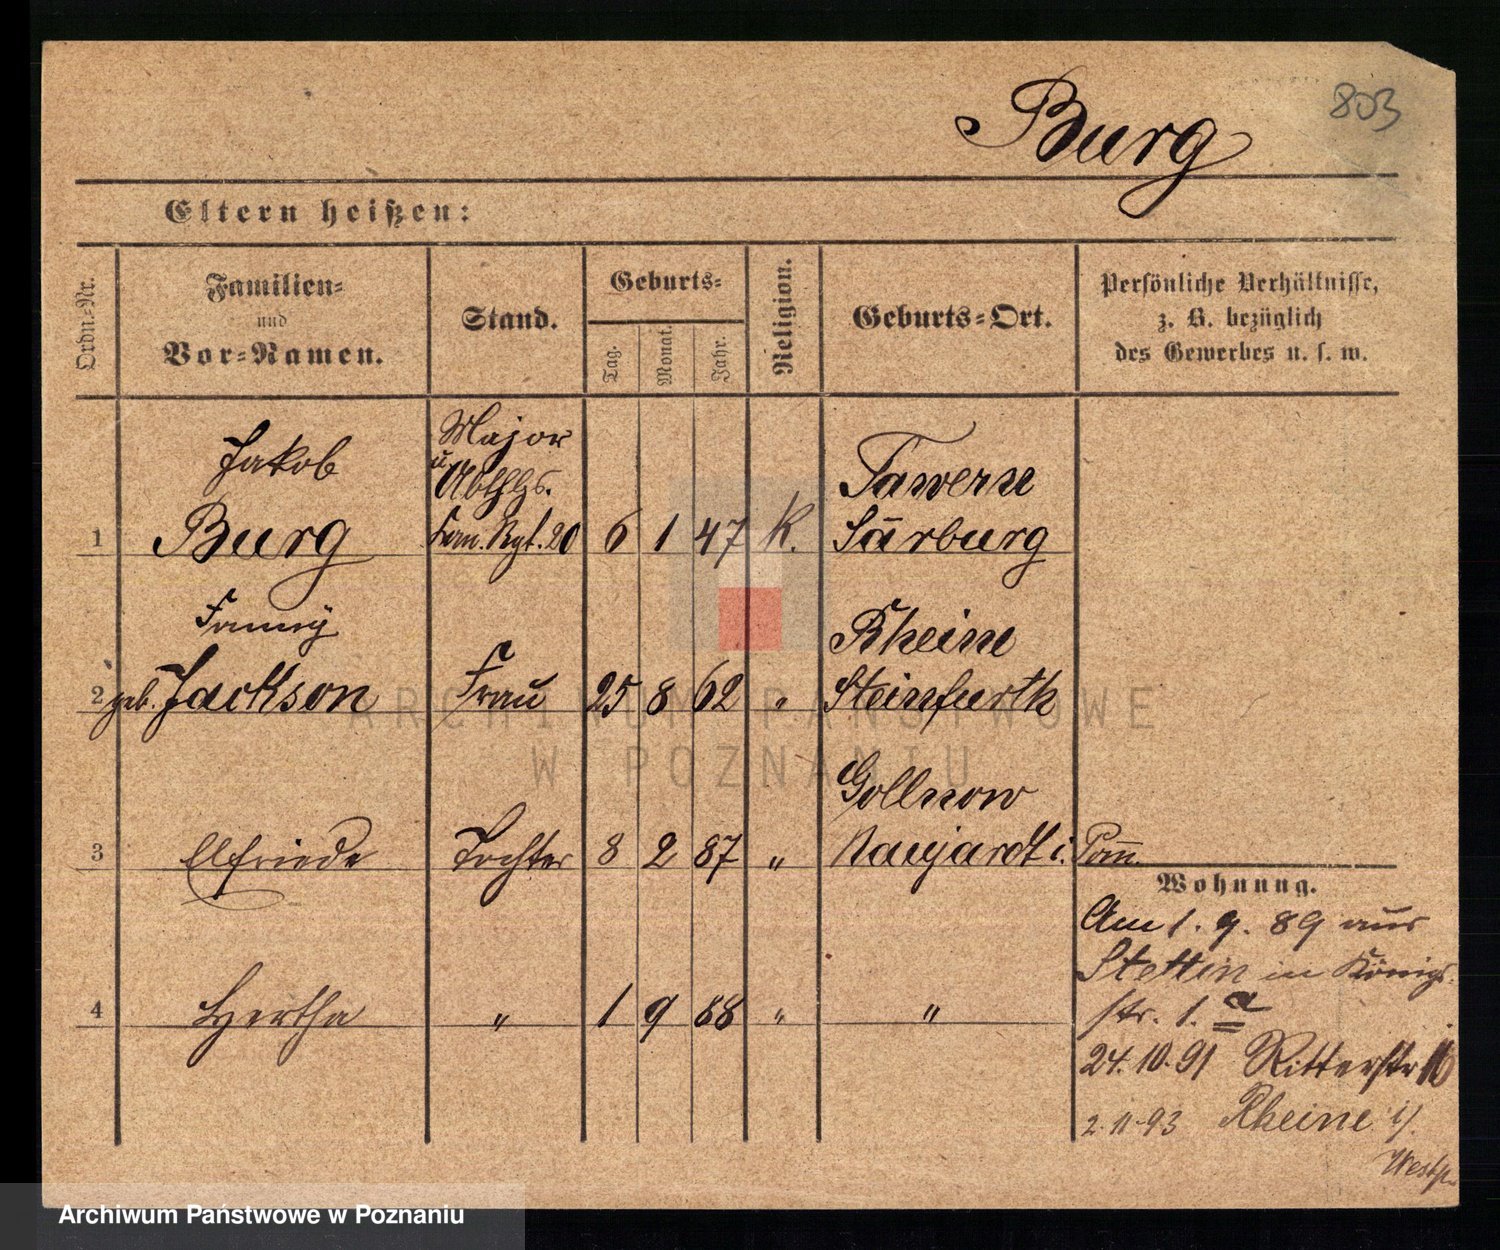 803
Burg
Eltern heißen:
Ordn.-Nr.
Familien-
und
Vor-Namen.
Stand.
Geburts-
Tag.
Monat.
Jahr.
Religion.
Geburts-Ort.
Persönliche Verhältnisse,
z. B. bezüglich
des Gewerbes u. s. w.
Jakob
Major
u
Abthlgs.
Tawern
1 Burg Rgt. 20 6 1 47 K. Sarburg
Fanny
Rheine
2 geb. Jackson Frau 25 8 62 " Steinfurth
Gollnow
3 Elfriede Tochter 8 2 87 " Naugardt i. Pom.
Wohnung.
Am 1. 9. 89 aus
Stettin in Königs
4 Hertha " 1 9 88 " "
str. 1. a
24. 10. 91 Ritterstr 16
2. 11. 93 Rheine i/
Westf.
ARCHIWUM PAŃSTWOWE
W POZNANIU
Archiwum Państwowe w Poznaniu